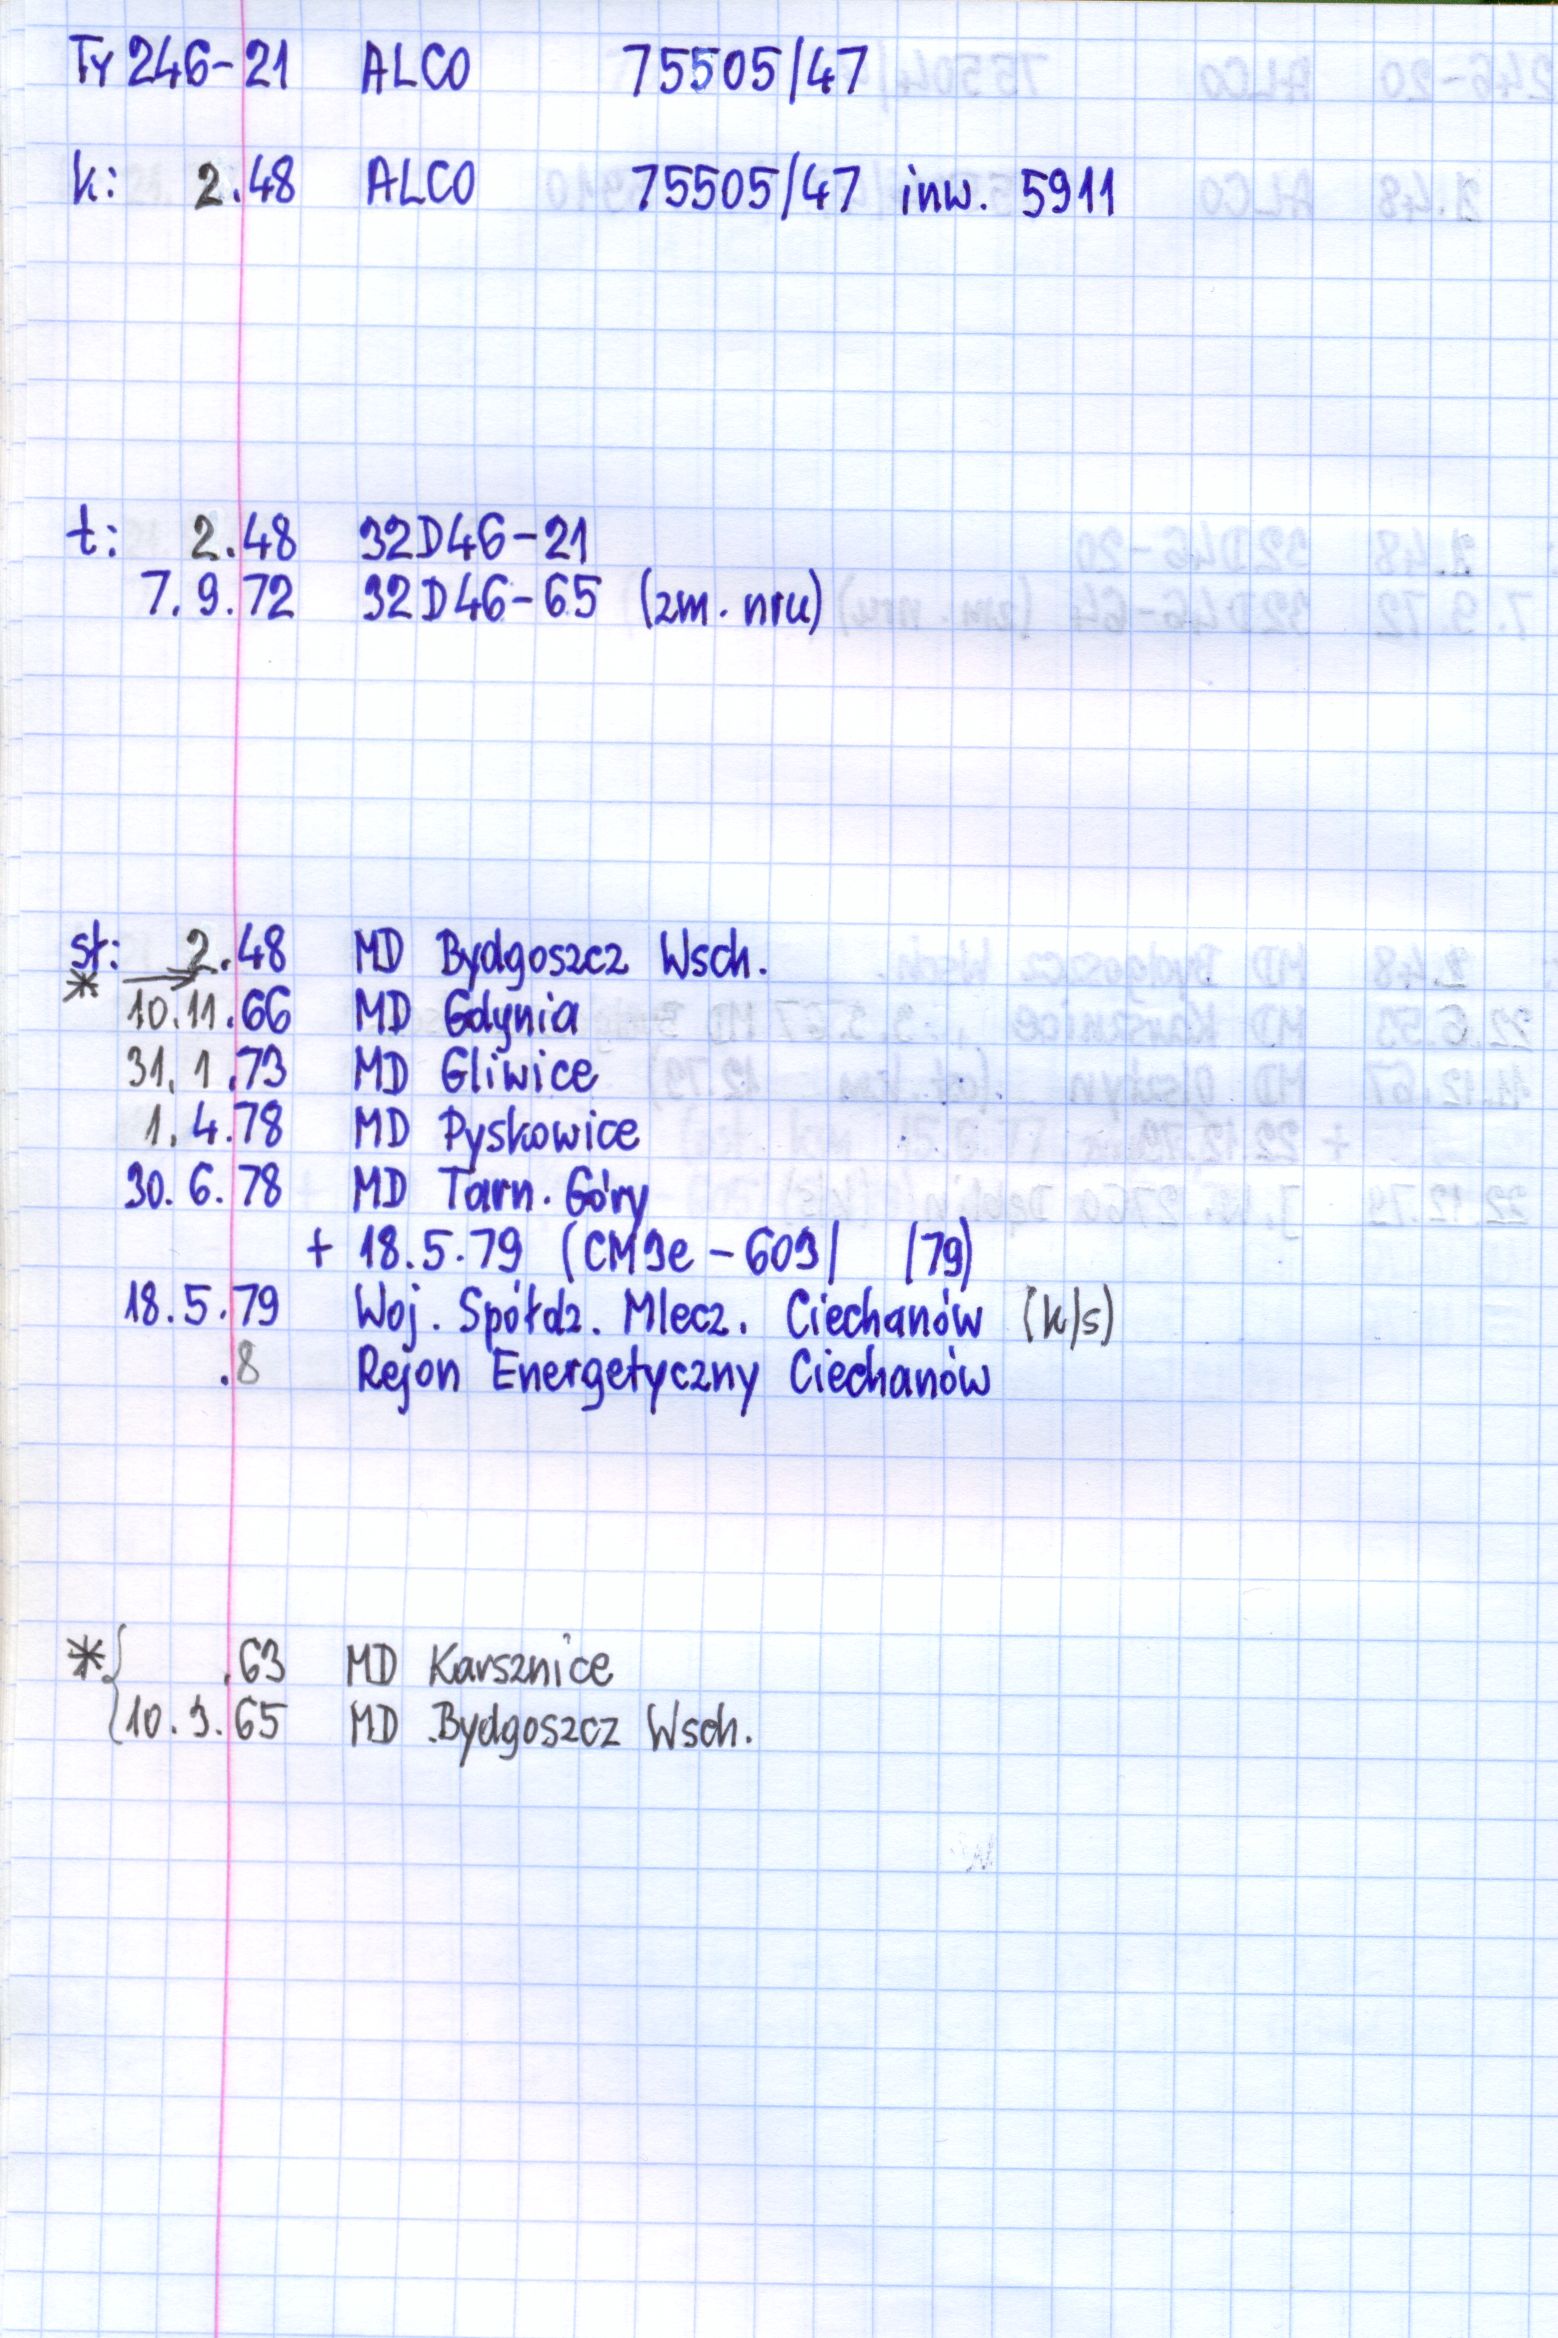 Ty246-21 ALCO 75505/47
k: 2.48 ALCO 75505/47 inw. 5911
t: 2.48 32D46-21
7.9.72 32D46-65 (zm. nru)
st: 2.48 MD Bydgoszcz Wsch.
* →
10.11.66 MD Gdynia
31.1.73 MD Gliwice
1.4.78 MD Pyskowice
30.6.78 MD Tarn. Góry
+ 18.5.79 (CM9e-609/ /79)
18.5.79 Woj. Spółdz. Mlecz. Ciechanów (k/s)
.8 Rejon Energetyczny Ciechanów
* { .63 MD Karsznice
10.9.65 MD Bydgoszcz Wsch.